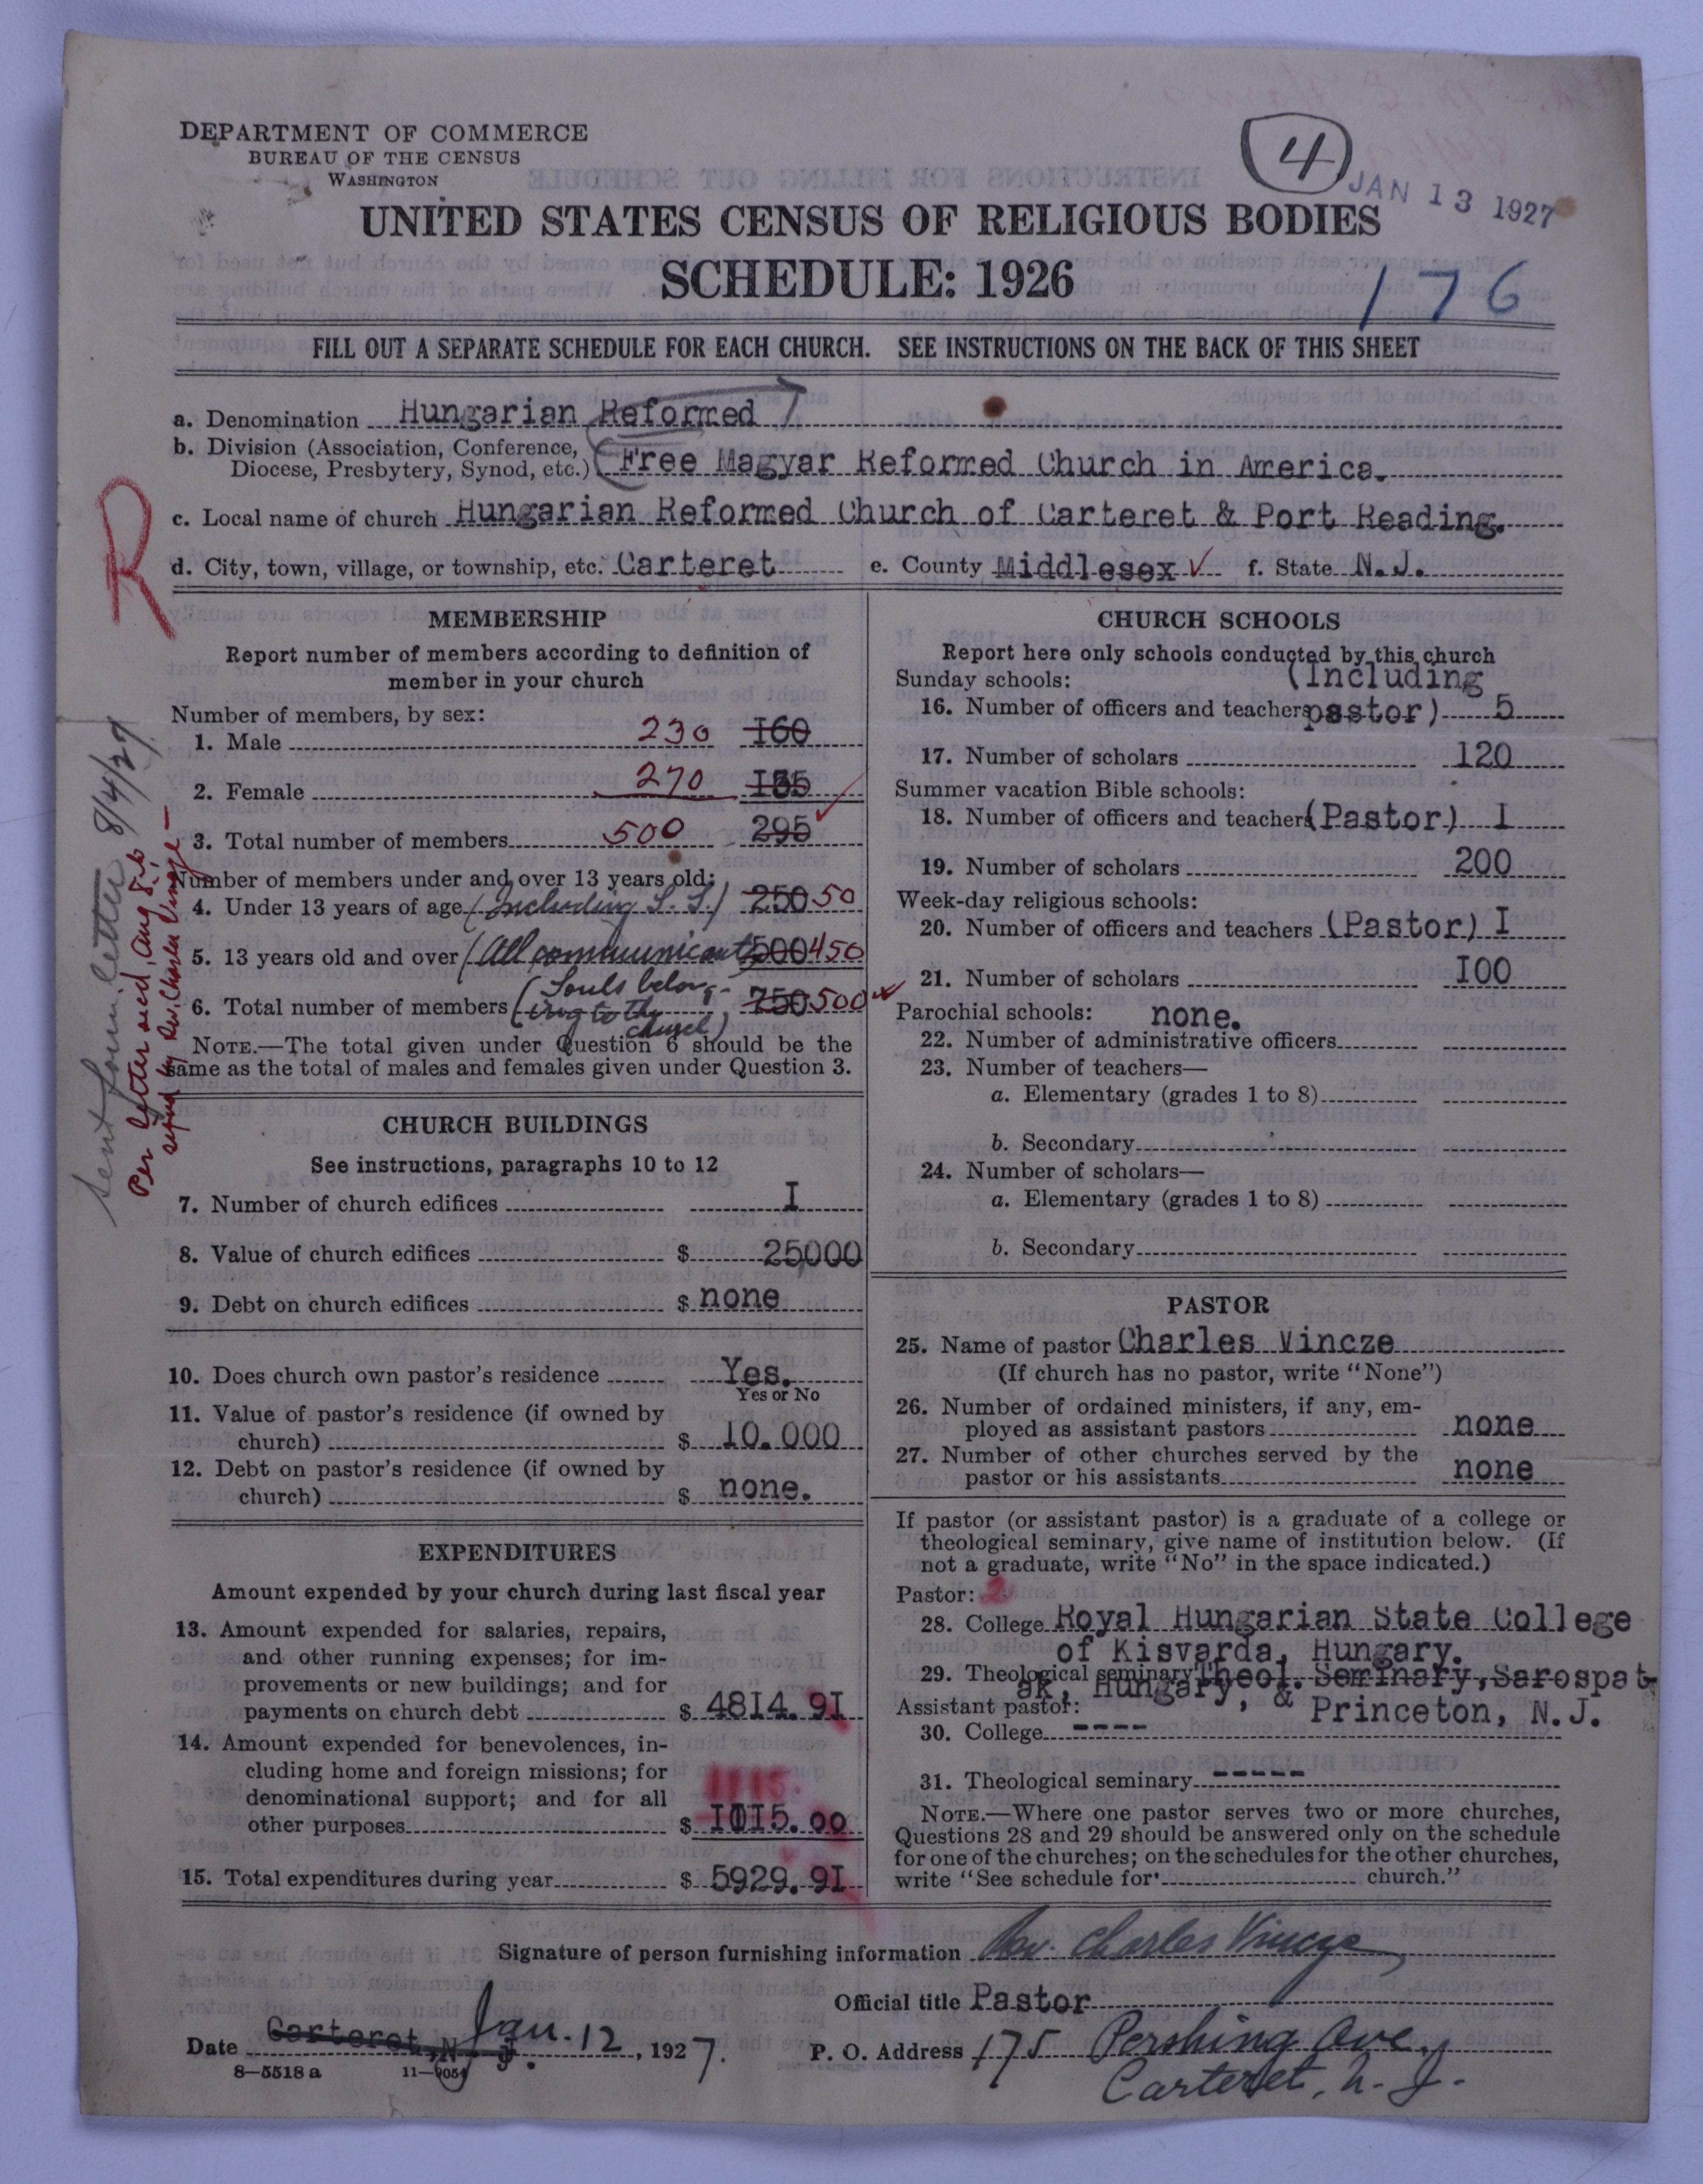 DEPARTMENT OF COMMERCE
BUREAU OF THE CENSUS
WASHINGTON
4
JAN 13 1927
UNITED STATES CENSUS OF RELIGIOUS BODIES
SCHEDULE: 1926
176
FILL OUT A SEPARATE SCHEDULE FOR EACH CHURCH. SEE INSTRUCTIONS ON THE BACK OF THIS SHEET
a. Denomination Hungarian Reformed
b. Division (Association, Conference,
Diocese, Presbytery, Synod, etc.) (Free Magyar Reformed Church in America.
c. Local name of church Hungarian Reformed Church of Carteret & Port Reading.
d. City, town, village, or township, etc. Carteret e. County Middlesex ✓ f. State N.J.
R
Sent form letter 8/4/27
Per letter rec'd Aug 8-26
signed by Rev. Charles Vincze —
MEMBERSHIP
Report number of members according to definition of
member in your church
Number of members, by sex:
1. Male 230 I60
2. Female 270 I35
3. Total number of members 500 295
Number of members under and over 13 years old:
4. Under 13 years of age (Including S. S.) 250 50
5. 13 years old and over (All communicants 500 450
6. Total number of members (Souls belong-
ing to the
church) 750 500
NOTE.—The total given under Question 6 should be the
same as the total of males and females given under Question 3.
CHURCH BUILDINGS
See instructions, paragraphs 10 to 12
7. Number of church edifices I
8. Value of church edifices $ 25,000
9. Debt on church edifices $ none
10. Does church own pastor's residence Yes.
Yes or No
11. Value of pastor's residence (if owned by
church) $ 10.000
12. Debt on pastor's residence (if owned by
church) $ none.
EXPENDITURES
Amount expended by your church during last fiscal year
13. Amount expended for salaries, repairs,
and other running expenses; for im-
provements or new buildings; and for
payments on church debt $ 4814.9I
14. Amount expended for benevolences, in-
cluding home and foreign missions; for
denominational support; and for all
1115.
other purposes $ I0I5.00
15. Total expenditures during year $ 5929.9I
CHURCH SCHOOLS
Report here only schools conducted by this church
Sunday schools: (Including
16. Number of officers and teachers pastor) 5
17. Number of scholars 120
Summer vacation Bible schools:
18. Number of officers and teachers (Pastor) I
19. Number of scholars 200
Week-day religious schools:
20. Number of officers and teachers (Pastor) I
21. Number of scholars I00
Parochial schools: none.
22. Number of administrative officers
23. Number of teachers—
a. Elementary (grades 1 to 8)
b. Secondary
24. Number of scholars—
a. Elementary (grades 1 to 8)
b. Secondary
PASTOR
25. Name of pastor Charles Vincze
(If church has no pastor, write "None")
26. Number of ordained ministers, if any, em-
ployed as assistant pastors none
27. Number of other churches served by the
pastor or his assistants none
If pastor (or assistant pastor) is a graduate of a college or
theological seminary, give name of institution below. (If
not a graduate, write "No" in the space indicated.)
Pastor: 2
28. College Royal Hungarian State College
of Kisvarda, Hungary.
29. Theological seminary Theol. Seminary, Sarospat-
ak, Hungary, & Princeton, N.J.
Assistant pastor:
30. College ----
31. Theological seminary -----
NOTE.—Where one pastor serves two or more churches,
Questions 28 and 29 should be answered only on the schedule
for one of the churches; on the schedules for the other churches,
write "See schedule for church."
Signature of person furnishing information Rev. Charles Vincze
Official title Pastor
Date Carteret, N. J. Jan. 12, 1927. P. O. Address 175 Pershing Ave.,
Carteret, N. J.
8—5518 a 11—9054